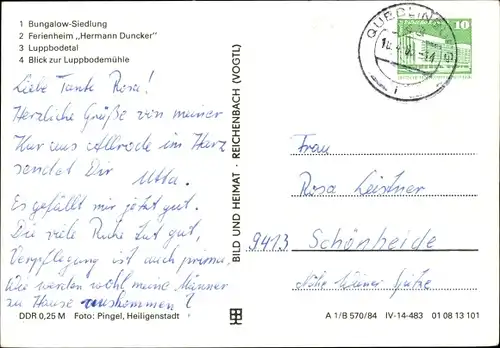 1 Bungalow-Siedlung
2 Ferienheim „Hermann Duncker"
3 Luppbodetal
4 Blick zur Luppbodemühle
Liebe Tante Rosa!
Herzliche Grüße von meiner
Kur aus Allrode im Harz
sendet Dir Utta.
Es gefällt mir jetzt gut.
Die viele Ruhe tut gut,
Verpflegung ist auch prima,
Wie werden wohl meine Männer
zu Hause auskommen?
DDR 0,25 M Foto: Pingel, Heiligenstadt
BILD UND HEIMAT · REICHENBACH (VOGTL)
QUEDLINBURG
10
Frau
Rosa Leistner
9413 Schönheide
A 1/B 570/84 IV-14-483 01 08 13 101